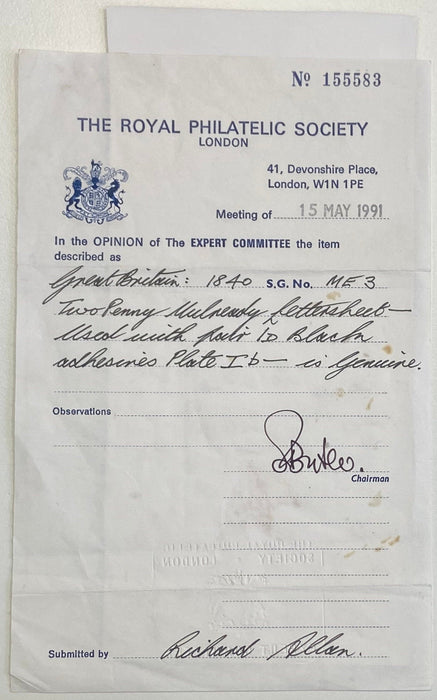 Nº 155583
THE ROYAL PHILATELIC SOCIETY
LONDON
41, Devonshire Place,
London, W1N 1PE
Meeting of 15 MAY 1991
In the OPINION of The EXPERT COMMITTEE the item
described as
Great Britain: 1840 S.G. No. ME3
Two Penny Mulready Lettersheet —
Used with pair 1D Black
adhesives Plate Ib — is Genuine.
Observations
Chairman
THE ROYAL PHILATELIC
SOCIETY
LONDON
Submitted by Richard Allan.